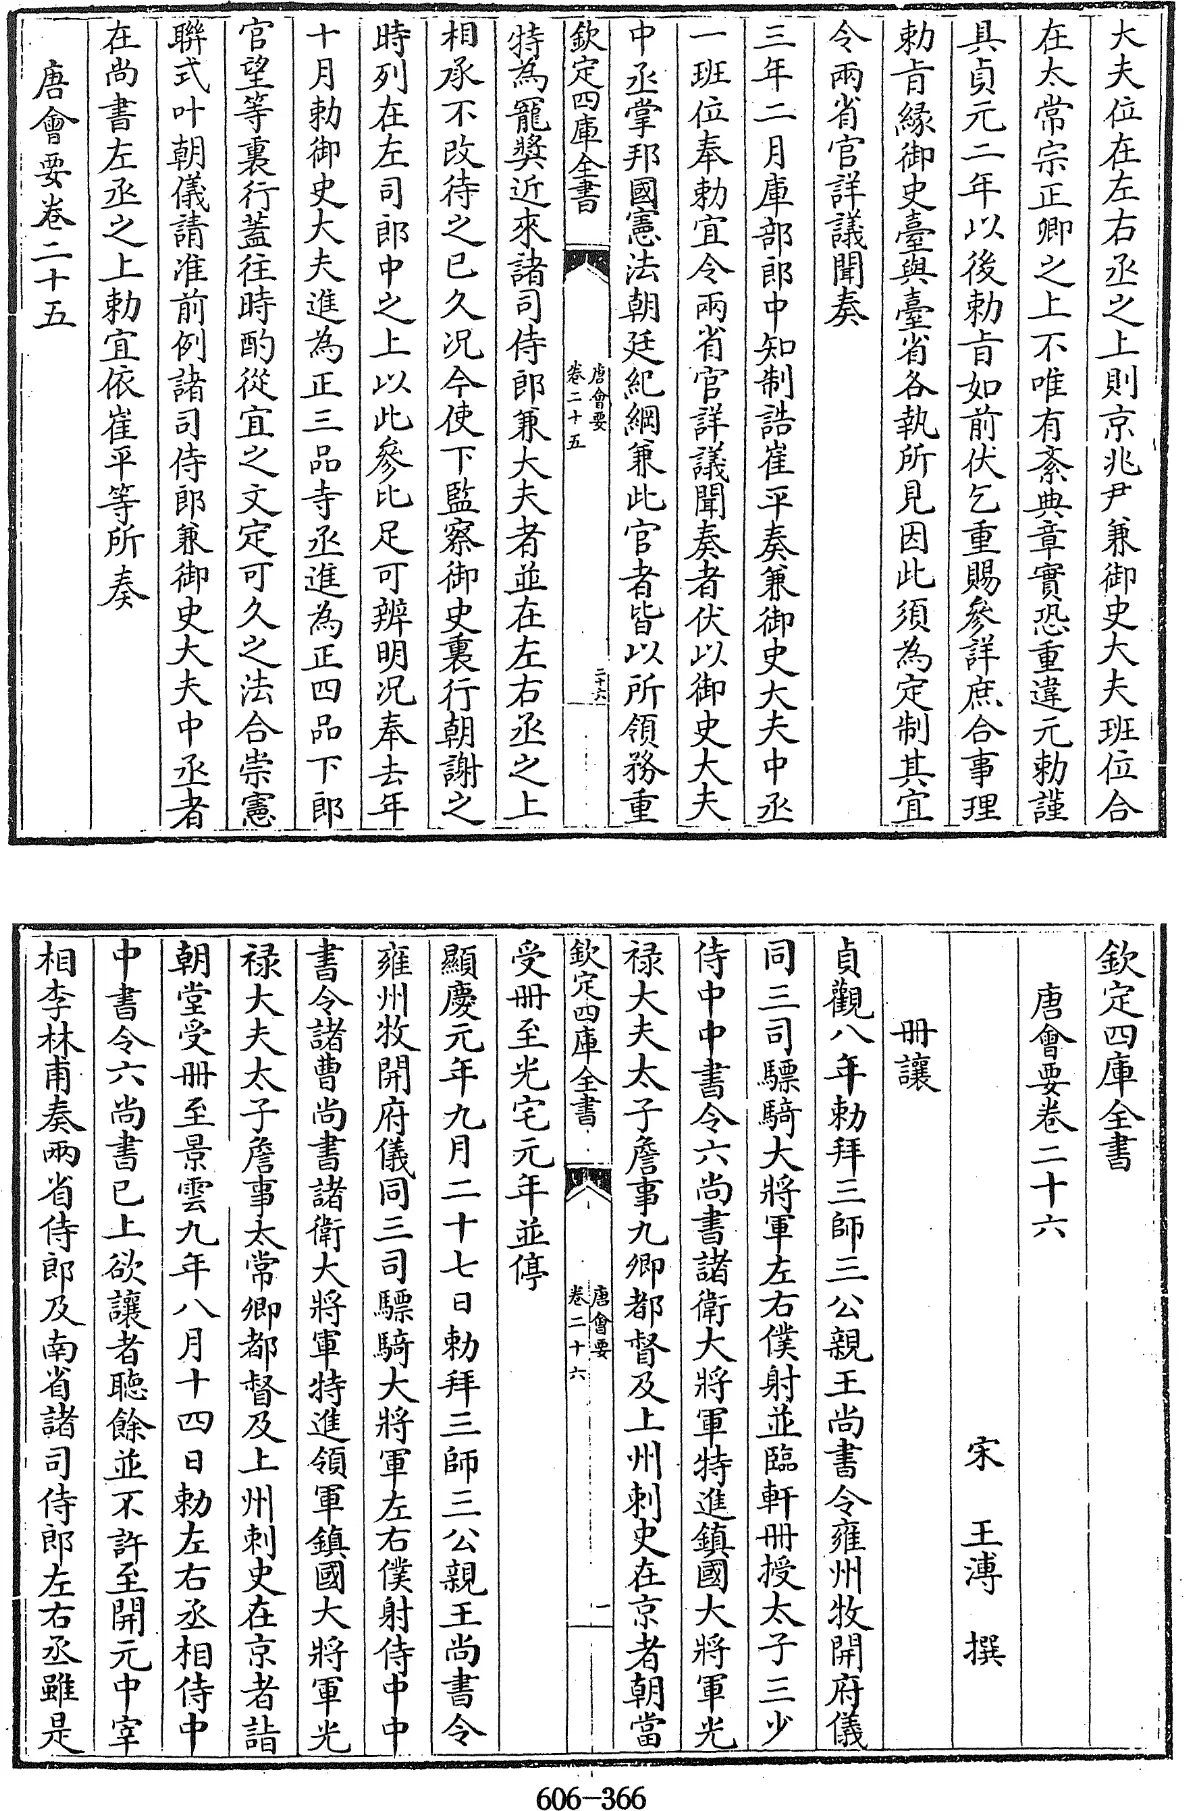 大夫位在左右丞之上則京兆尹兼御史大夫班位合
在太常宗正卿之上不唯有紊典章實恐重違元勅謹
具貞元二年以後勅旨如前伏乞重賜參詳庶合事理
勅旨縁御史臺與臺省各執所見因此須為定制其宜
令兩省官詳議聞奏
三年二月庫部郎中知制誥崔平奏兼御史大夫中丞
一班位奉勅宜令兩省官詳議聞奏者伏以御史大夫
中丞掌邦國憲法朝廷紀綱兼此官者皆以所領務重
欽定四庫全書
唐會要
卷二十五
二十六
特為寵奬近來諸司侍郎兼大夫者並在左右丞之上
相承不改待之已久况今使下監察御史裏行朝謝之
時列在左司郎中之上以此參比足可辨明况奉去年
十月勅御史大夫進為正三品寺丞進為正四品下郎
官望等裏行蓋往時酌從宜之文定可久之法合崇憲
聯式叶朝儀請准前例諸司侍郎兼御史大夫中丞者
在尚書左丞之上勅宜依崔平等所奏
唐會要卷二十五
欽定四庫全書
唐會要卷二十六
宋 王溥 撰
冊讓
貞觀八年勅拜三師三公親王尚書令雍州牧開府儀
同三司驃騎大將軍左右僕射並臨軒冊授太子三少
侍中中書令六尚書諸衛大將軍特進鎮國大將軍光
禄大夫太子詹事九卿都督及上州刺史在京者朝當
欽定四庫全書
唐會要
卷二十六
一
受冊至光宅元年並停
顯慶元年九月二十七日勅拜三師三公親王尚書令
雍州牧開府儀同三司驃騎大將軍左右僕射侍中中
書令諸曹尚書諸衛大將軍特進領軍鎮國大將軍光
禄大夫太子詹事太常卿都督及上州刺史在京者詣
朝堂受冊至景雲九年八月十四日勅左右丞相侍中
中書令六尚書已上欲讓者聽餘並不許至開元中宰
相李林甫奏兩省侍郎及南省諸司侍郎左右丞雖是
606-366